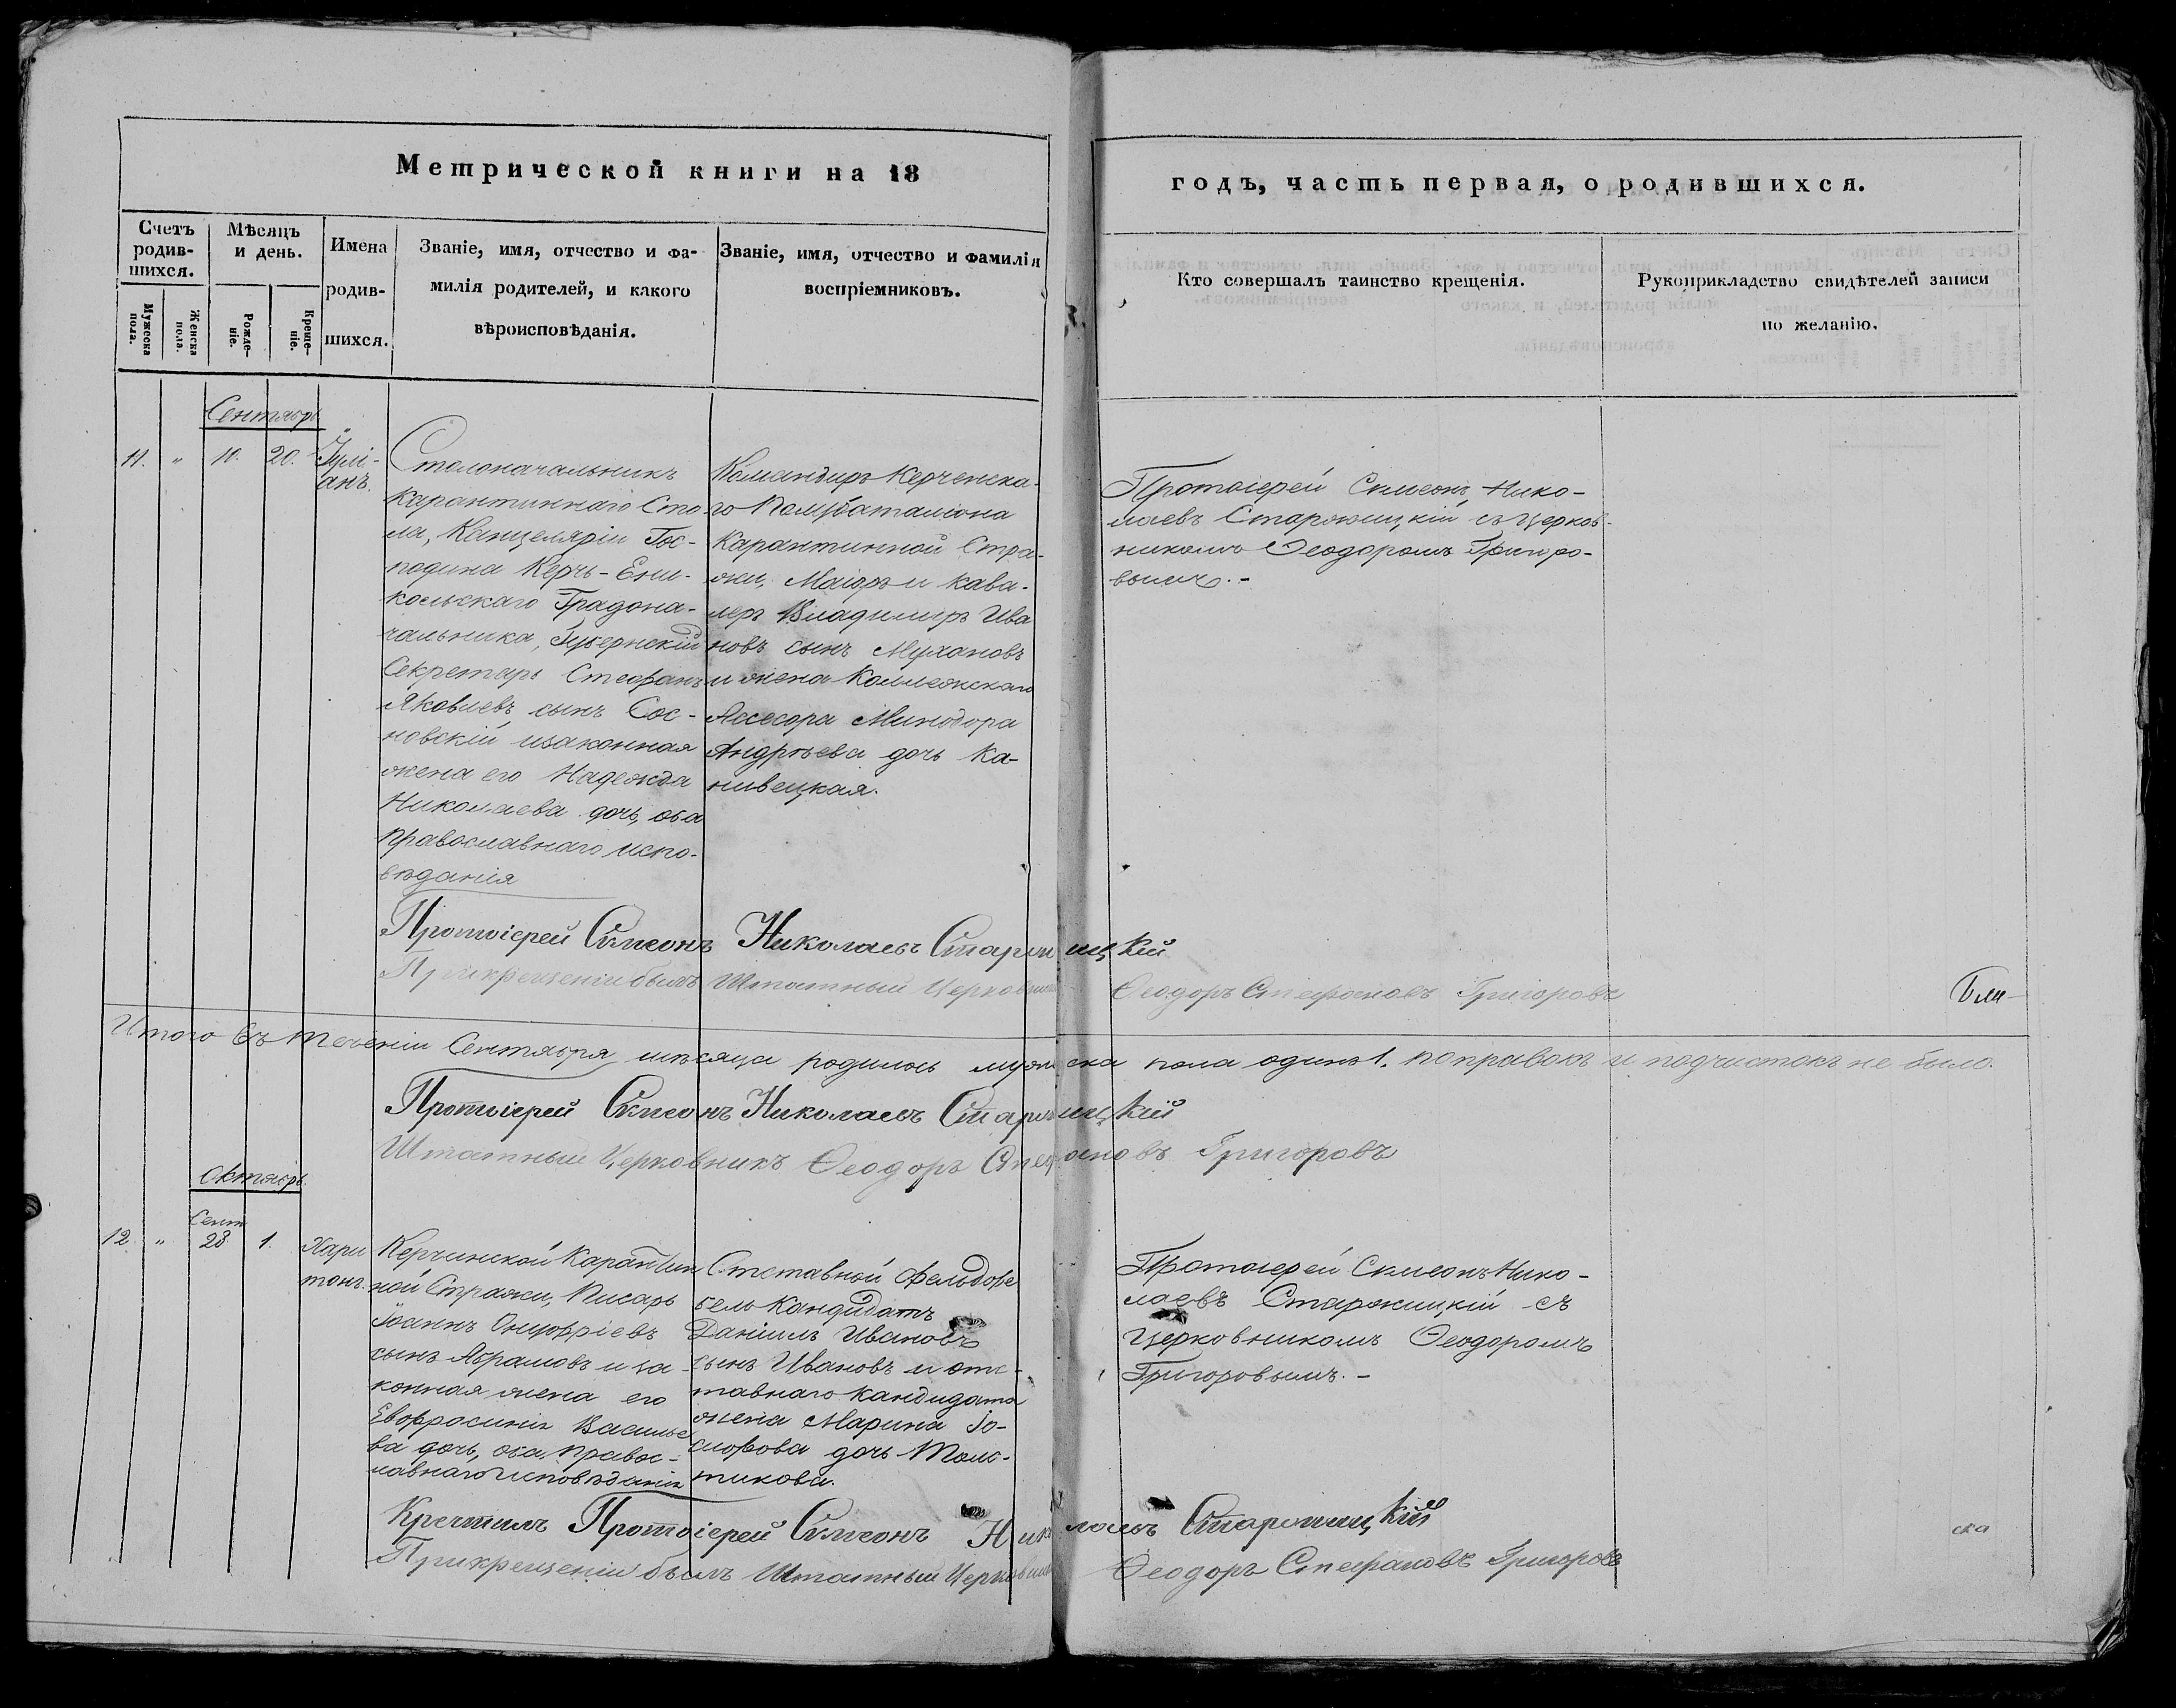 Метрической книги на 18
годъ, часть первая, о родившихся.
Счетъ родив-шихся.
Мѣсяцъ и день.
Имена родив-шихся.
Званіе, имя, отчество и фа-
милія родителей, и какого
вѣроисповѣданія.
Званіе, имя, отчество и фамилія
воспріемниковъ.
Кто совершалъ таинство крещенія.
Рукоприкладство свидѣтелей записи
по желанію.
Мужеска пола.
Женска пола.
Рожде-ніе.
Креще-ніе.
Сентябрь
11. " 10. 20. Іулі-
анъ.
Столоначальникъ
Карантиннаго Сто-
ла, Канцеляріи Гос-
подина Керчь-Ени-
кольскаго Градона-
чальника, Губернскій
Секретарь Стефанъ
Яковлевъ сынъ Сос-
новскій изаконная
жена его Надежда
Николаева дочь, оба
православнаго испо-
вѣданія
Командиръ Керченска-
го Полубаталіона
Карантинной Стра-
жи, Маіоръ и кава-
леръ Владимиръ Ива
новъ сынъ Мухановъ
и жена Коллежскаго
Ассесора Минодора
Андрѣева дочь Ка-
нивецкая.
Протоіерей Симеонъ Нико-
лаевъ Старжицкій съ Церков-
никомъ Ѳеодоромъ Григоро-
вымъ.-
Протоіерей Симеонъ Николаевъ Старжицкій
При крещеніи былъ Штатный Церковникъ Ѳеодоръ Стефановъ Григоровъ
Бли-
Итого въ теченіи Сентября мѣсяца родилось мужеска пола одинъ 1. поправокъ и подчистокъ не было.
Протоіерей Симеонъ Николаевъ Старжицкій
Штатный Церковникъ Ѳеодоръ Стефановъ Григоровъ
Октябрь.
Сент
12. " 28 1. Хари
тонъ.
Керчинской Карантин
ной Стражи, Писарь
Іоаннъ Онуфріевъ
сынъ Абрамовъ и за-
конная жена его
Евфросинія Василье
ва дочь, оба правос-
лавнаго исповѣданія
Отставной Фельдфе
бель Кандидатъ
Даніилъ Ивановъ
сынъ Ивановъ и отс-
тавнаго кандидата
жена Марина Іо-
сифова дочь Толс-
тикова.
Протоіерей Симеонъ Нико-
лаевъ Старжицкій съ
Церковникомъ Ѳеодоромъ
Григоровымъ.-
Крестилъ Протоіерей Симеонъ Николаевъ Старжицкій
При крещеніи былъ Штатный Церковникъ Ѳеодоръ Стефановъ Григоровъ
ска